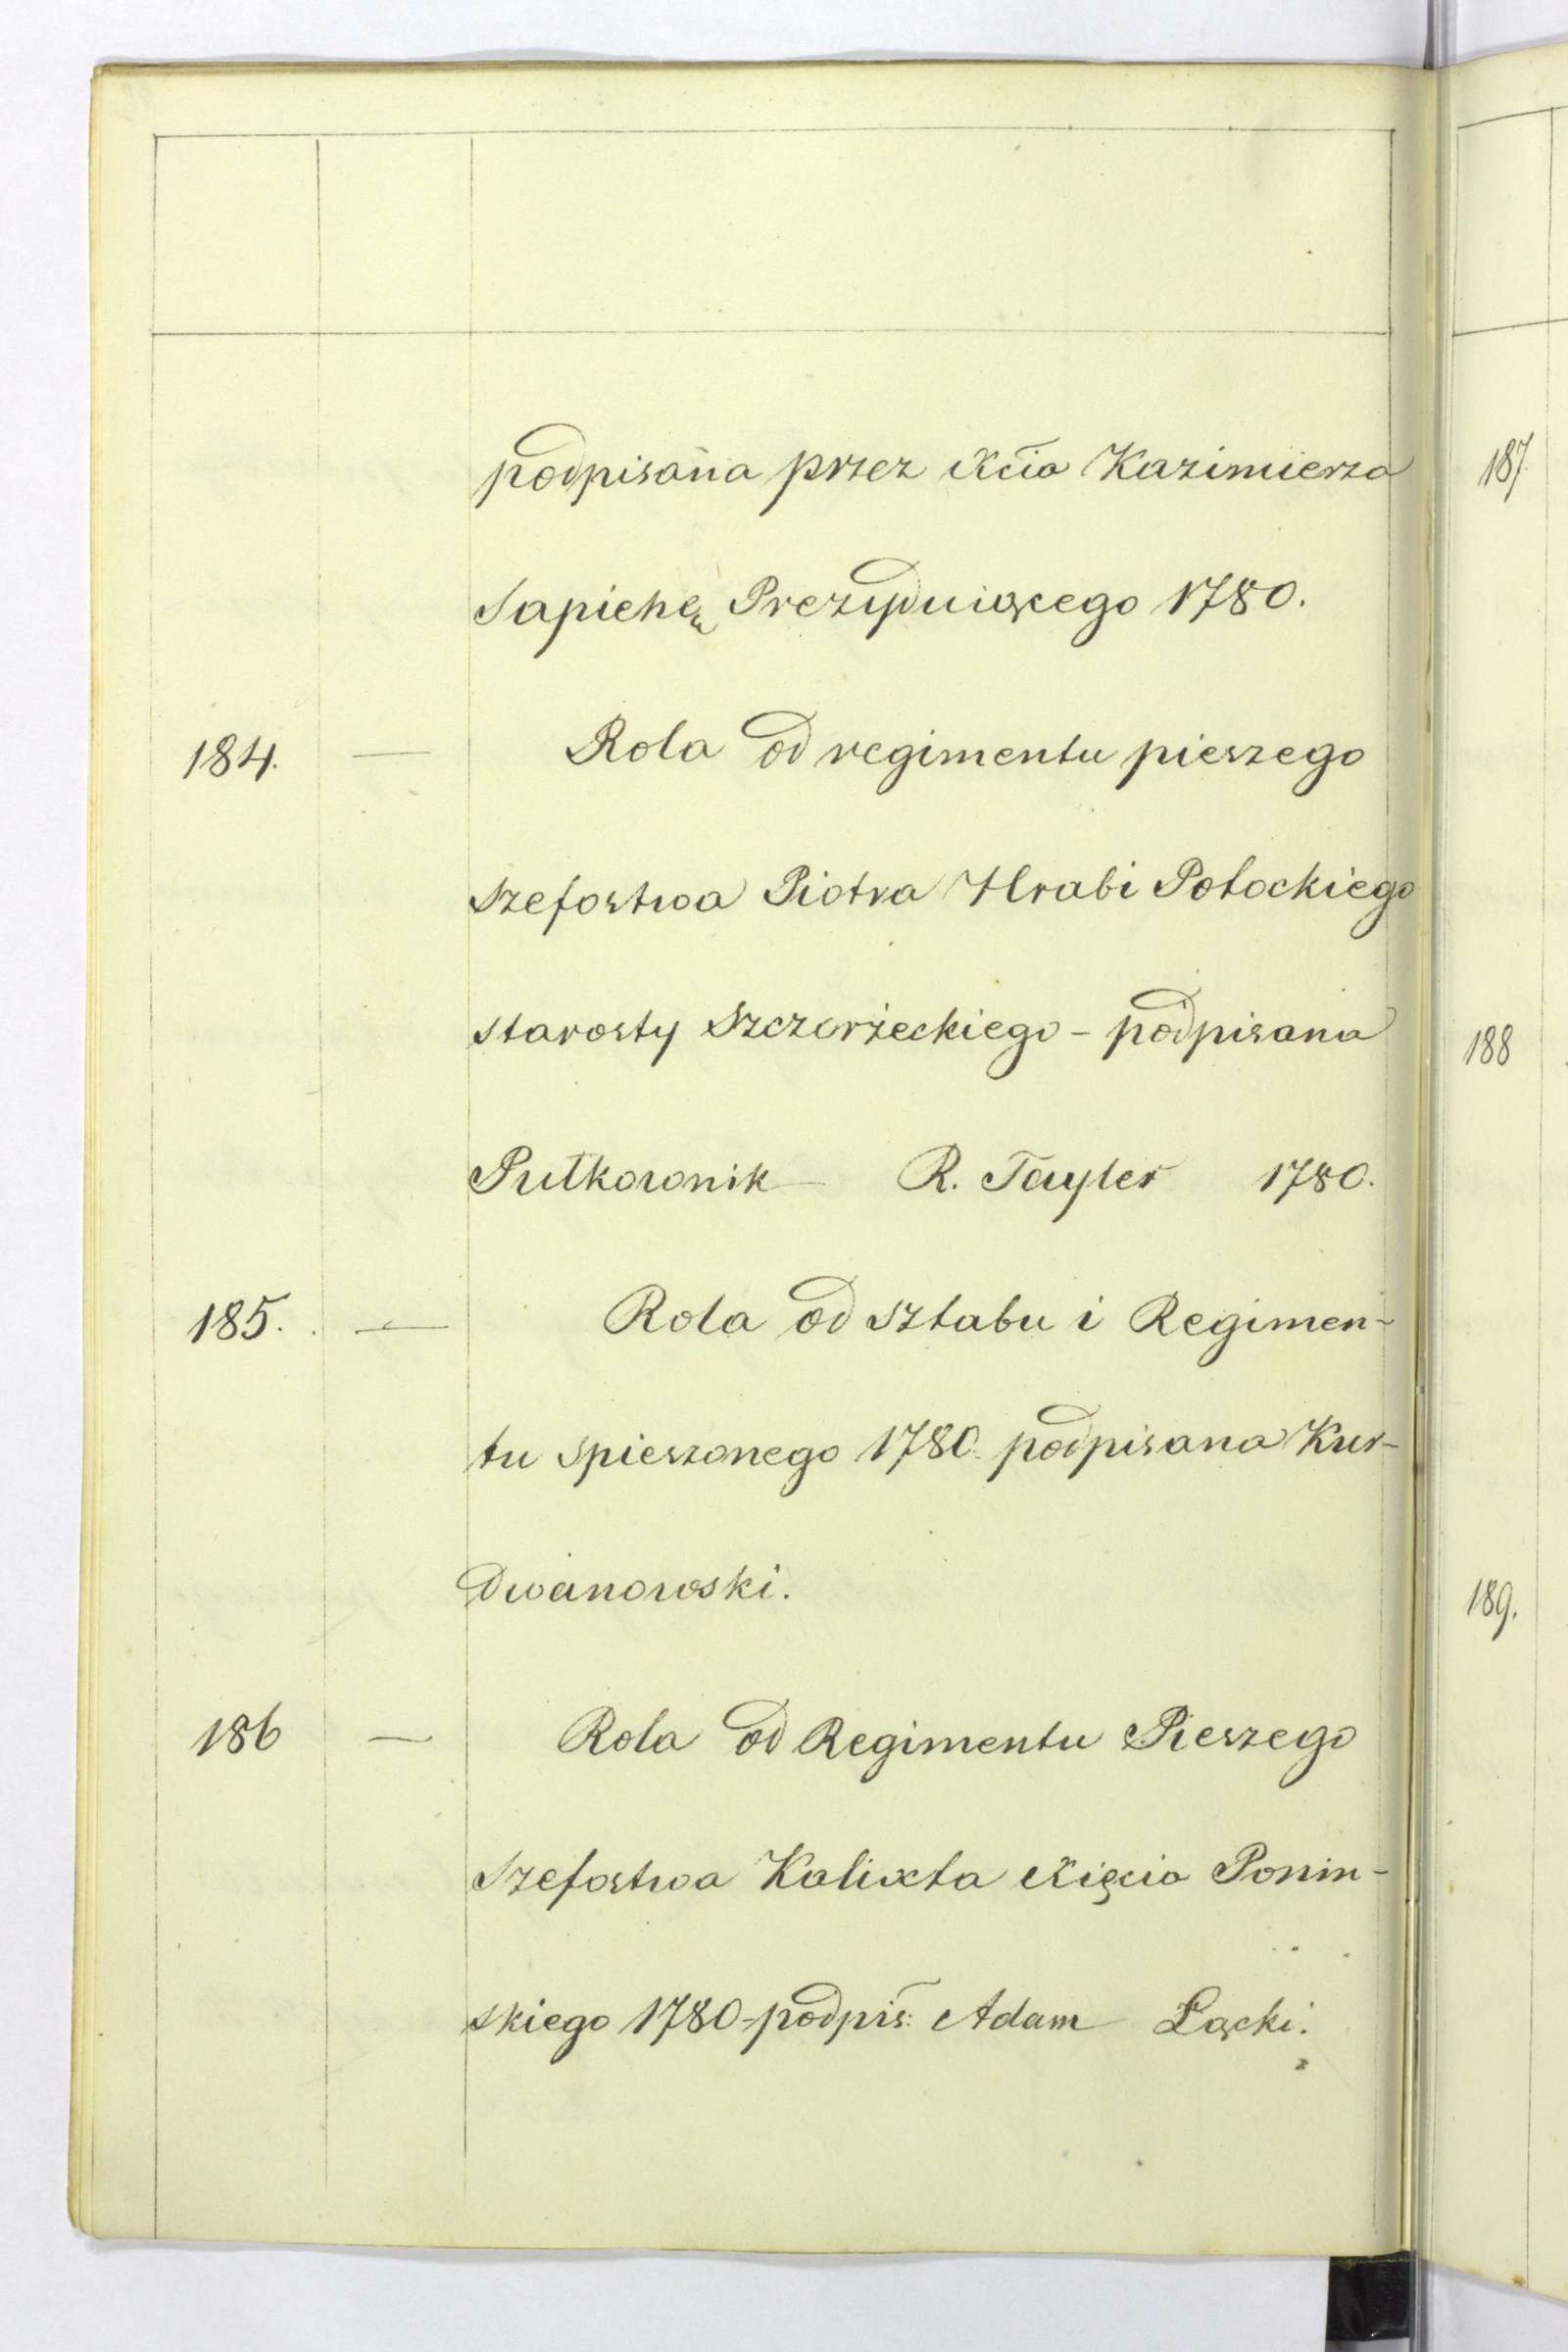 podpisana przez Xcia Kazimierza
Sapiehę Prezyduiącego 1780.
184. — Rola od regimentu pieszego
szefostwa Piotra Hrabi Potockiego
starosty Szczerżeckiego - podpisana
Pułkownik R. Tayler 1780.
185. — Rola od sztabu i Regimen-
tu spieszonego 1780. podpisana Kur-
dwanowski.
186 — Rola od Regimentu Pieszego
Szefostwa Kalixta Xięcia Ponin-
skiego 1780 - podpis: Adam Łącki.
187.
188
189.